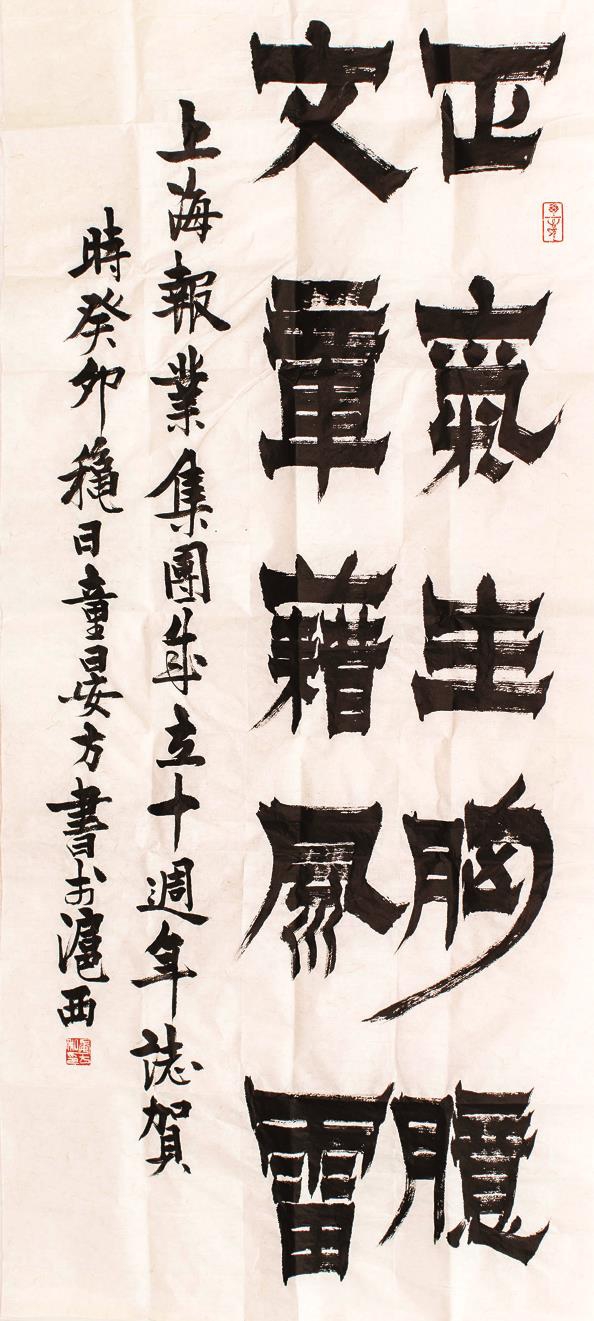 正氣生胸臆
文章藉風雷
上海報業集團成立十週年誌賀
時癸卯穐日童晏方書於滬西